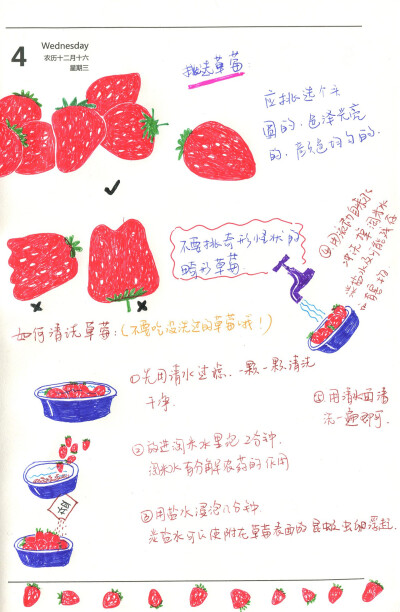 4
Wednesday
农历十二月十六
星期三
挑选草莓
应挑选个头
圆的、色泽光亮
的、颜色均匀的.
不要挑奇形怪状的
畸形草莓
如何清洗草莓:(不要吃没洗过的草莓哦!)
①先用清水过滤. 一颗一颗清洗
干净.
②放进淘米水里泡2分钟.
淘米水有分解农药的作用
③用盐水浸泡几分钟.
淡盐水可以使附在草莓表面的昆虫虫卵浮起.
盐
④用流动自来水
清洗草莓
⑤用清水再清
洗一遍即可.